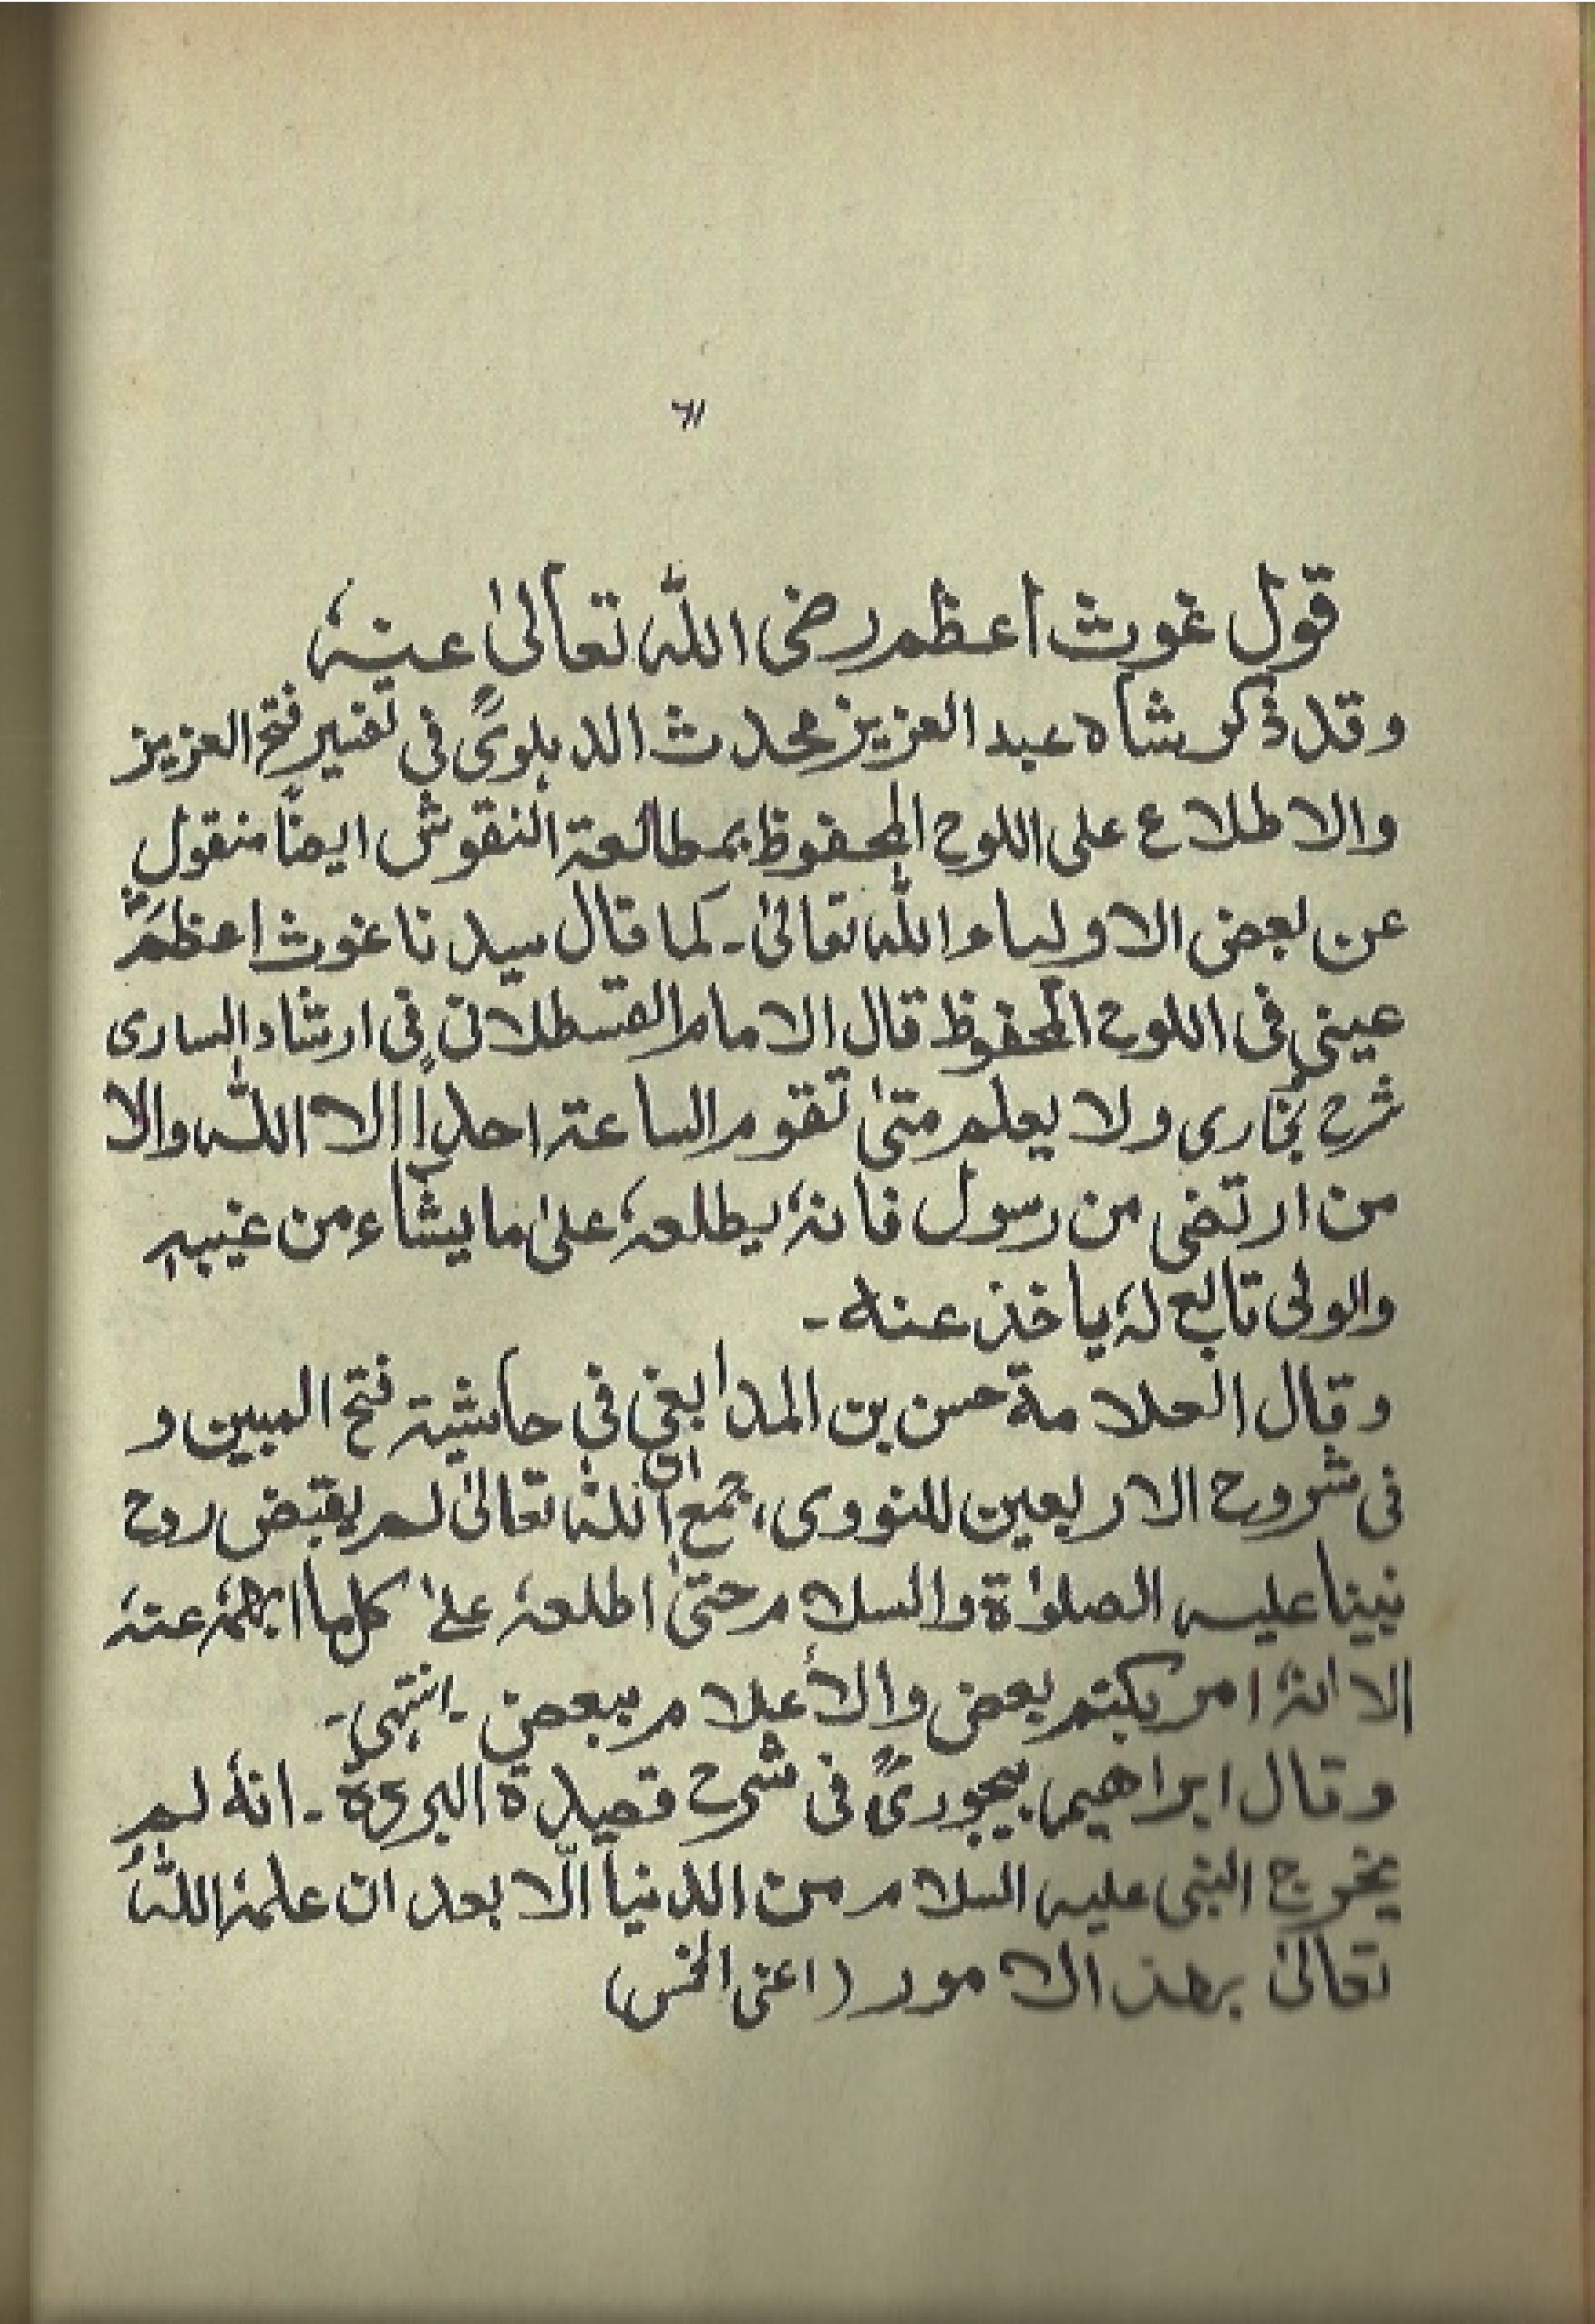 ٦١
قول غوث اعظم رضی اللہ تعالیٰ عنہٗ
وقد ذکر شاہ عبد العزیز محدث الدہلویؒ فی تفسیر فتح العزیز
والاطلاع علی اللوح المحفوظ بمطالعۃ النقوش ایضاً منقول
عن بعض الاولیاء اللہ تعالیٰ۔ کما قال سیدنا غوث اعظمؒ
عینی فی اللوح المحفوظ قال الامام القسطلانی فی ارشاد الساری
شرح بخاری ولا یعلم متیٰ تقوم الساعۃ احداً الا اللہ والا
من ارتضی من رسول فانہٗ یطلعہٗ علیٰ ما یشاء من غیبہٖ
والولی تابع لہٗ یاخذ عنہ۔
وقال العلامۃ حسن بن المدابغی فی حاشیۃ فتح المبین و
فی شروح الاربعین للنووی، جمع ان اللہ تعالیٰ لم یقبض روح
نبینا علیہ الصلوٰۃ والسلام حتیٰ اطلعہٗ علیٰ کل ما ابھمہٗ عنہٗ
الا انہٗ امر بکتم بعض والاعلام ببعض۔ انتہی۔
وقال ابراھیم بیجوریؒ فی شرح قصیدۃ البردۃ۔ انہٗ لم
یخرج النبی علیہ السلام من الدنیا الّا بعد ان علمہٗ اللہُ
تعالیٰ بھذ الامور (اعنی الخمس)